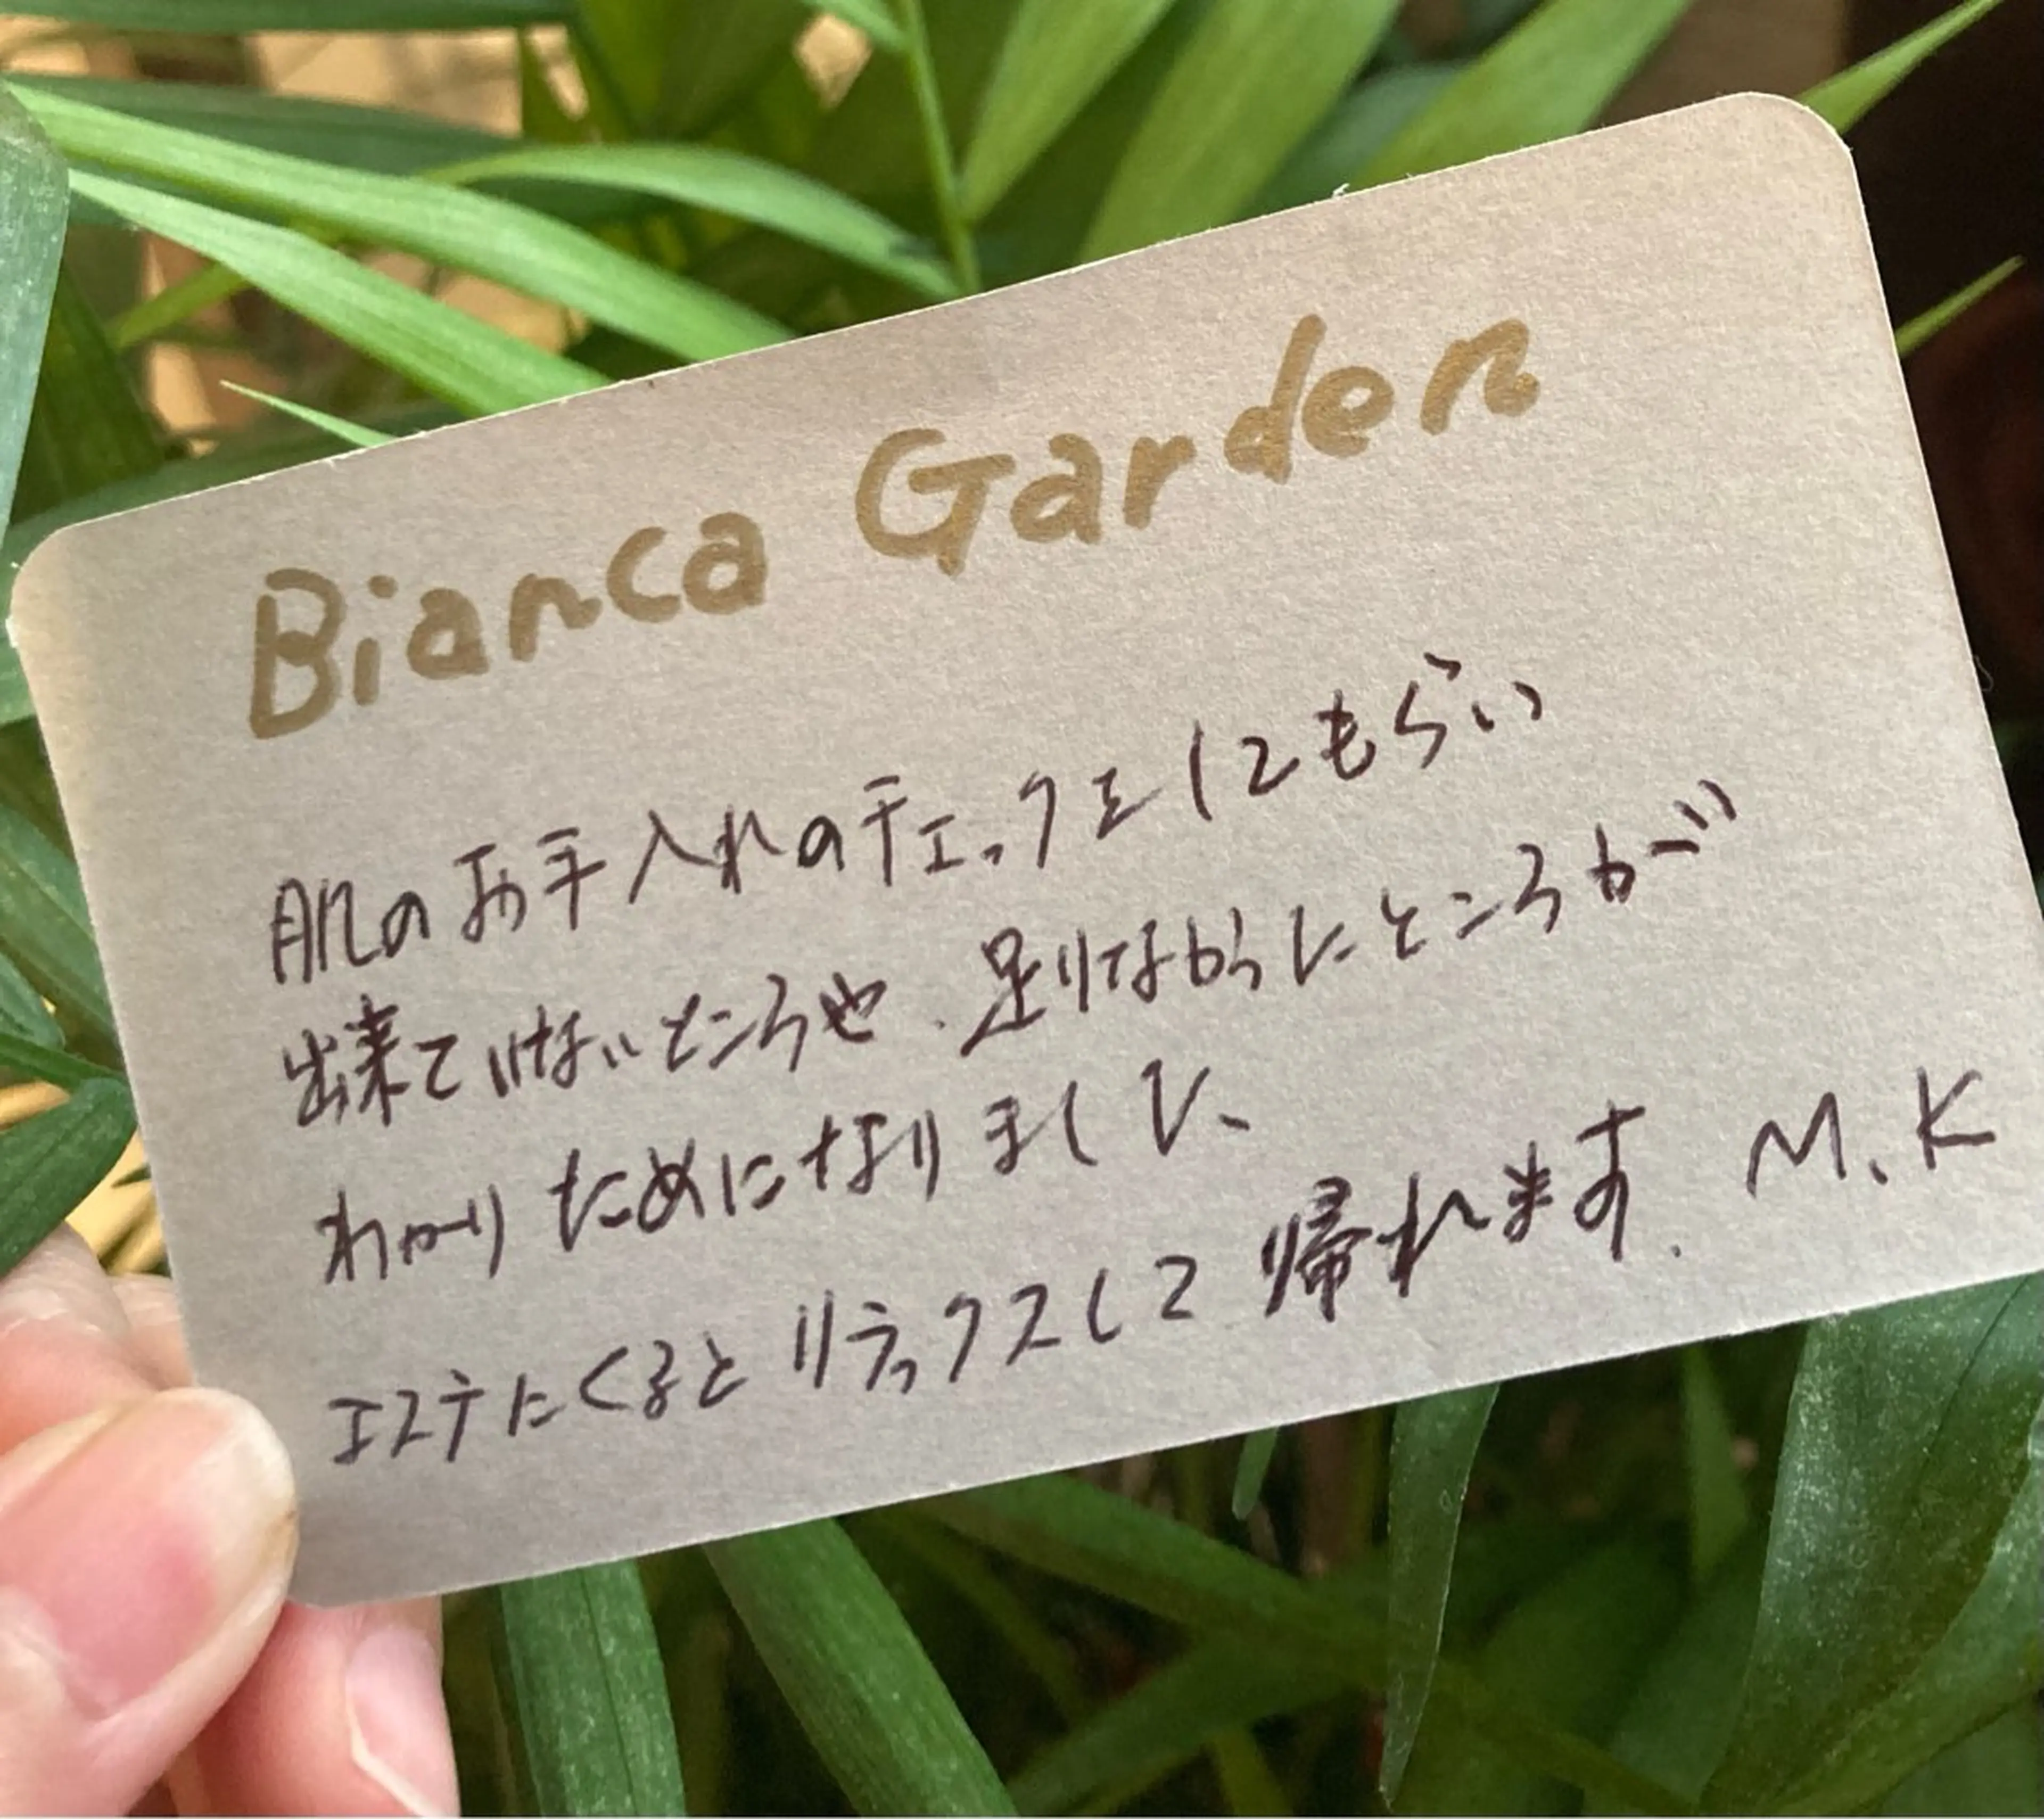 Bianca Garden
肌のお手入れのチェックをしてもらい
出来ていないところや、足りなかったところが
わかりためになりました、
エステにくるとリラックスして帰れます. M.K